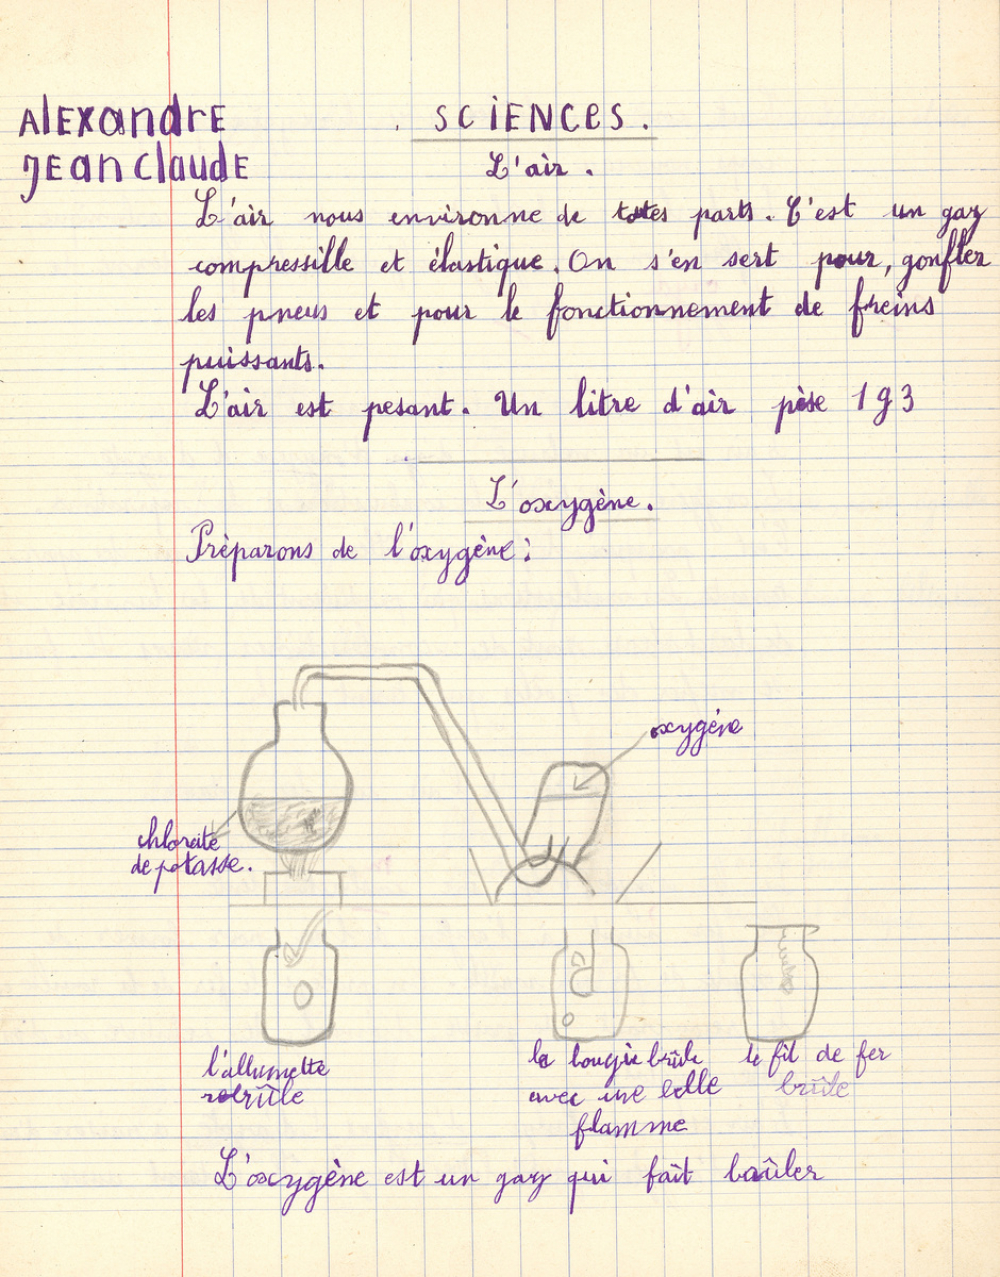 AlExandrE
SCiENCES.
JEan claudE
L'air.
L'air nous environne de toutes parts. C'est un gaz
compressille et élastique. On s'en sert pour, gonfler
les pneus et pour le fonctionnement de freins
puissants.
L'air est pesant. Un litre d'air pèse 1 g 3
L'oxygène.
Prèparons de l'oxygène:
oxygéne
chlorate
de potasse.
l'allumette
rebrûle
la bougie brûle
avec une belle
flamme
le fil de fer
brûle
L'oxygène est un gaz qui fait brûler